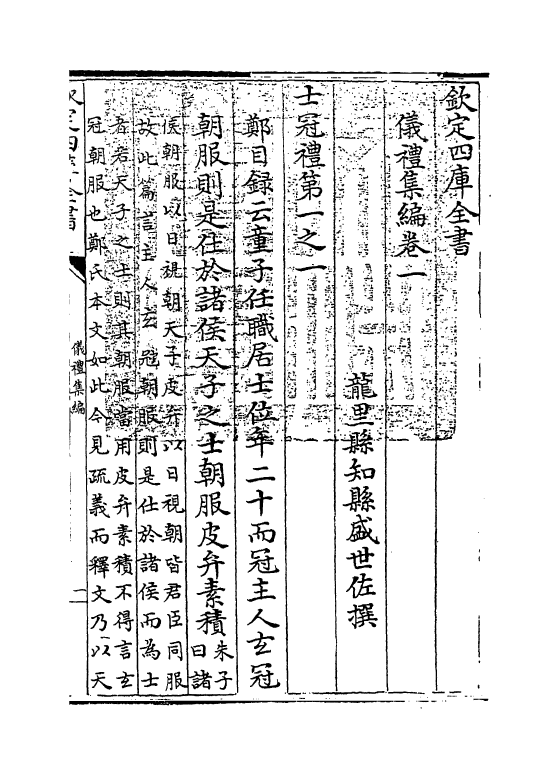 欽定四庫全書
儀禮集編卷一
龍里縣知縣盛世佐撰
士冠禮第一之一
鄭目録云童子任職居士位年二十而冠主人玄冠
朝服則是仕於諸侯天子之士朝服皮弁素積朱子
曰諸
侯朝服以日視朝天子皮弁以日視朝皆君臣同服
故此篇言主人玄冠朝服則是仕於諸侯而為士
者若天子之士則其朝服當用皮弁素積不得言玄
冠朝服也鄭氏本文如此今見疏義而釋文乃以天
欽定四庫全書
儀禮集編
二